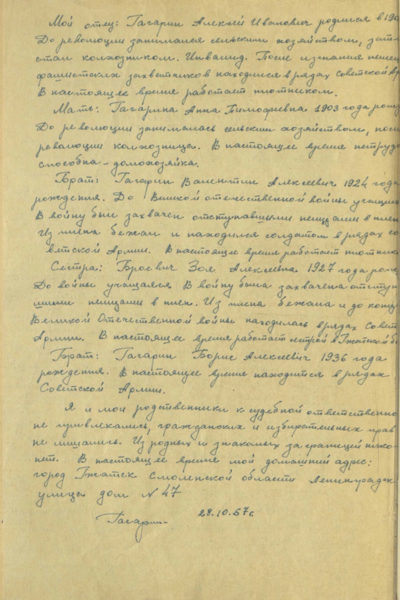 Мой отец: Гагарин Алексей Иванович родился в 190
До революции занимался сельским хозяйством, зат
стал колхозником. Инвалид. После изгнания немец
фашистских захватчиков находился в рядах Советской Ар
В настоящее время работает плотником.
Мать: Гагарина Анна Тимофеевна 1903 года рожд
До революции занималась сельским хозяйством, посл
революции колхозница. В настоящее время нетрудо
способна - домохозяйка.
Брат: Гагарин Валентин Алексеевич 1924 года
рождения. До Великой отечественной войны учащий
В войну был захвачен отступавшими немцами в плен
Из плена бежал и находился солдатом в рядах Со
ветской Армии. В настоящее время работает
Сестра: Брусвич Зоя Алексеевна 1927 года рожд
До войны учащаяся В войну была захвачена отступ
шими немцами в плен. Из плена бежала и до конца
Великой Отечественной войны находилась в рядах Совет
Армии. В настоящее время работает в Гжатской б
Брат: Гагарин Борис Алексеевич 1936 года
рождения. В настоящее время находится в рядах
Советской Армии.
Я и мои родственники к судебной ответственно
не привлекались, гражданских и избирательных прав
не лишались. Из родных и знакомых за границей нико-
нет. В настоящее время мой домашний адрес:
город Гжатск Смоленской области Ленинградск
улица дом № 47
28.10.57г.
Гагарин